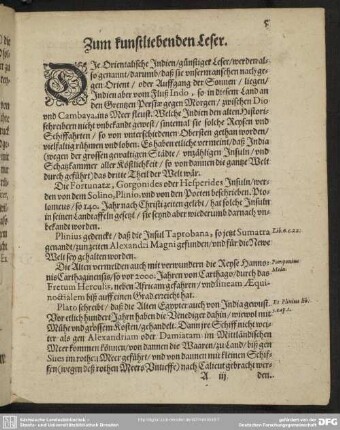 5
Zum kunstliebenden Leser.
DIe Orientalische Indien/günstiger Leser/werden al-
so genannt/darumb/daß sie unserm anschen nach ge-
gen Orient / oder Auffgang der Sonnen / liegen/
Indien aber vom Fluß Indo, so in disem Land an
den Grentzen Persiæ gegen Morgen / zwischen Diu
und Cambaya, ins Meer fleust. Welche Indien den alten Histori-
schreibern nicht unbekandt gewest / sintemal sie solche Reysen und
Schiffahrten / so von unterschiedenen Obersten gethan worden/
vielfaltig rühmen und loben. Es haben etliche vermeint/ daß India
(wegen der grossen gewaltigen Städte / unzähligen Insuln / und
Schatzkammer aller Köstlichkeit / so von dannen die gantze Welt
durch geführt) das dritte Theil der Welt wär.
Die Fortunatæ, Gorgonides oder Hesperides Insuln/wer-
den von dem Solino, Plinio, und von den Poeten beschrieben. Pto-
lomeus / so 140. Jahr nach Christi zeiten gelebt / hat solche Insuln
in seinen Landtaffeln gesetzt / sie seynd aber wiederumb darnach un-
bekandt worden.
Plinius gedenckt / daß die Insul Taprobana, so jetzt Sumatra
genandt/zun zeiten Alexandri Magni gefunden/und für die Newe
Welt sey gehalten worden.
Die Alten vermelden auch mit verwundern die Reyse Hanno-
nis Carthaginensis, so vor 2000. Jahren von Carthago / durch das
Fretum Herculis, neben Africam gefahren / und lineam Æqui-
noctialem biß auff einen Grad erreicht hat.
Plato schreibt / daß die Alten Egypter auch von India gewust.
Vor etlich hundert Jahrn haben die Venediger dahin / wiewol mit
Mühe und grossem Kosten/gehandelt. Dann jre Schiff nicht wei-
ter als gen Alexandriam oder Damiatam im Mittelländischen
Meer kommen können / von dannen die Waaren / zu Land / biß gen
Sues im rothen Meer geführt / und von dannen mit kleinen Schif-
fen (wegen deß rothen Meers Untieffe) nach Calicut gebracht wer-
A iij den.
Pomponius
Mela.